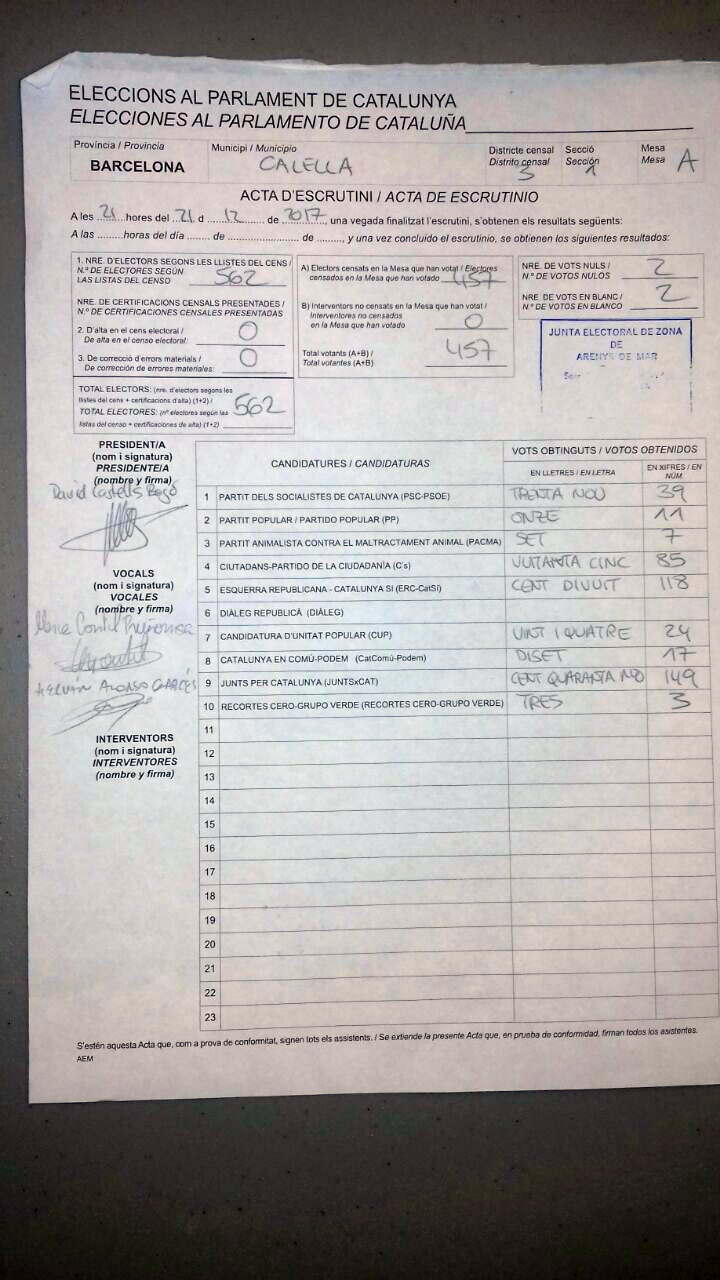 ELECCIONS AL PARLAMENT DE CATALUNYA
ELECCIONES AL PARLAMENTO DE CATALUÑA
Província / Provincia
BARCELONA
Municipi / Municipio
CALELLA
Districte censal
Distrito censal
3
Secció
Sección
1
Mesa
Mesa A
ACTA D'ESCRUTINI / ACTA DE ESCRUTINIO
A les 21 hores del 21 d 12 de 2017, una vegada finalitzat l'escrutini, s'obtenen els resultats següents:
A las ........ horas del día ....... de ........................ de ........, y una vez concluido el escrutinio, se obtienen los siguientes resultados:
1. NRE. D'ELECTORS SEGONS LES LLISTES DEL CENS /
N.º DE ELECTORES SEGÚN
LAS LISTAS DEL CENSO 562
NRE. DE CERTIFICACIONS CENSALS PRESENTADES /
N.º DE CERTIFICACIONES CENSALES PRESENTADAS
2. D'alta en el cens electoral /
De alta en el censo electoral: 0
3. De correcció d'errors materials /
De corrección de errores materiales: 0
TOTAL ELECTORS: (nre. d'electors segons les
llistes del cens + certificacions d'alta) (1+2) /
TOTAL ELECTORES: (nº electores según las
listas del censo + certificaciones de alta) (1+2) 562
A) Electors censats en la Mesa que han votat / Electores
censados en la Mesa que han votado 457
B) Interventors no censats en la Mesa que han votat /
Interventores no censados
en la Mesa que han votado 0
Total votants (A+B) /
Total votantes (A+B) 457
NRE. DE VOTS NULS /
N.º DE VOTOS NULOS 2
NRE. DE VOTS EN BLANC /
N.º DE VOTOS EN BLANCO 2
JUNTA ELECTORAL DE ZONA
DE
ARENYS DE MAR
PRESIDENT/A
(nom i signatura)
PRESIDENTE/A
(nombre y firma)
David Castells
VOCALS
(nom i signatura)
VOCALES
(nombre y firma)
HERNÁN ALONSO GARCÉS
INTERVENTORS
(nom i signatura)
INTERVENTORES
(nombre y firma)
CANDIDATURES / CANDIDATURAS
VOTS OBTINGUTS / VOTOS OBTENIDOS
EN LLETRES / EN LETRA
EN XIFRES / EN NÚM.
1 PARTIT DELS SOCIALISTES DE CATALUNYA (PSC-PSOE) TRENTA NOU 39
2 PARTIT POPULAR / PARTIDO POPULAR (PP) ONZE 11
3 PARTIT ANIMALISTA CONTRA EL MALTRACTAMENT ANIMAL (PACMA) SET 7
4 CIUTADANS-PARTIDO DE LA CIUDADANÍA (C's) VUITANTA CINC 85
5 ESQUERRA REPUBLICANA - CATALUNYA SÍ (ERC-CatSí) CENT DIVUIT 118
6 DIÀLEG REPUBLICÀ (DIÀLEG)
7 CANDIDATURA D'UNITAT POPULAR (CUP) VINT I QUATRE 24
8 CATALUNYA EN COMÚ-PODEM (CatComú-Podem) DISET 17
9 JUNTS PER CATALUNYA (JUNTSxCAT) CENT QUARANTA NO 149
10 RECORTES CERO-GRUPO VERDE (RECORTES CERO-GRUPO VERDE) TRES 3
11
12
13
14
15
16
17
18
19
20
21
22
23
S'estén aquesta Acta que, com a prova de conformitat, signen tots els assistents. / Se extiende la presente Acta que, en prueba de conformidad, firman todos los asistentes.
AEM